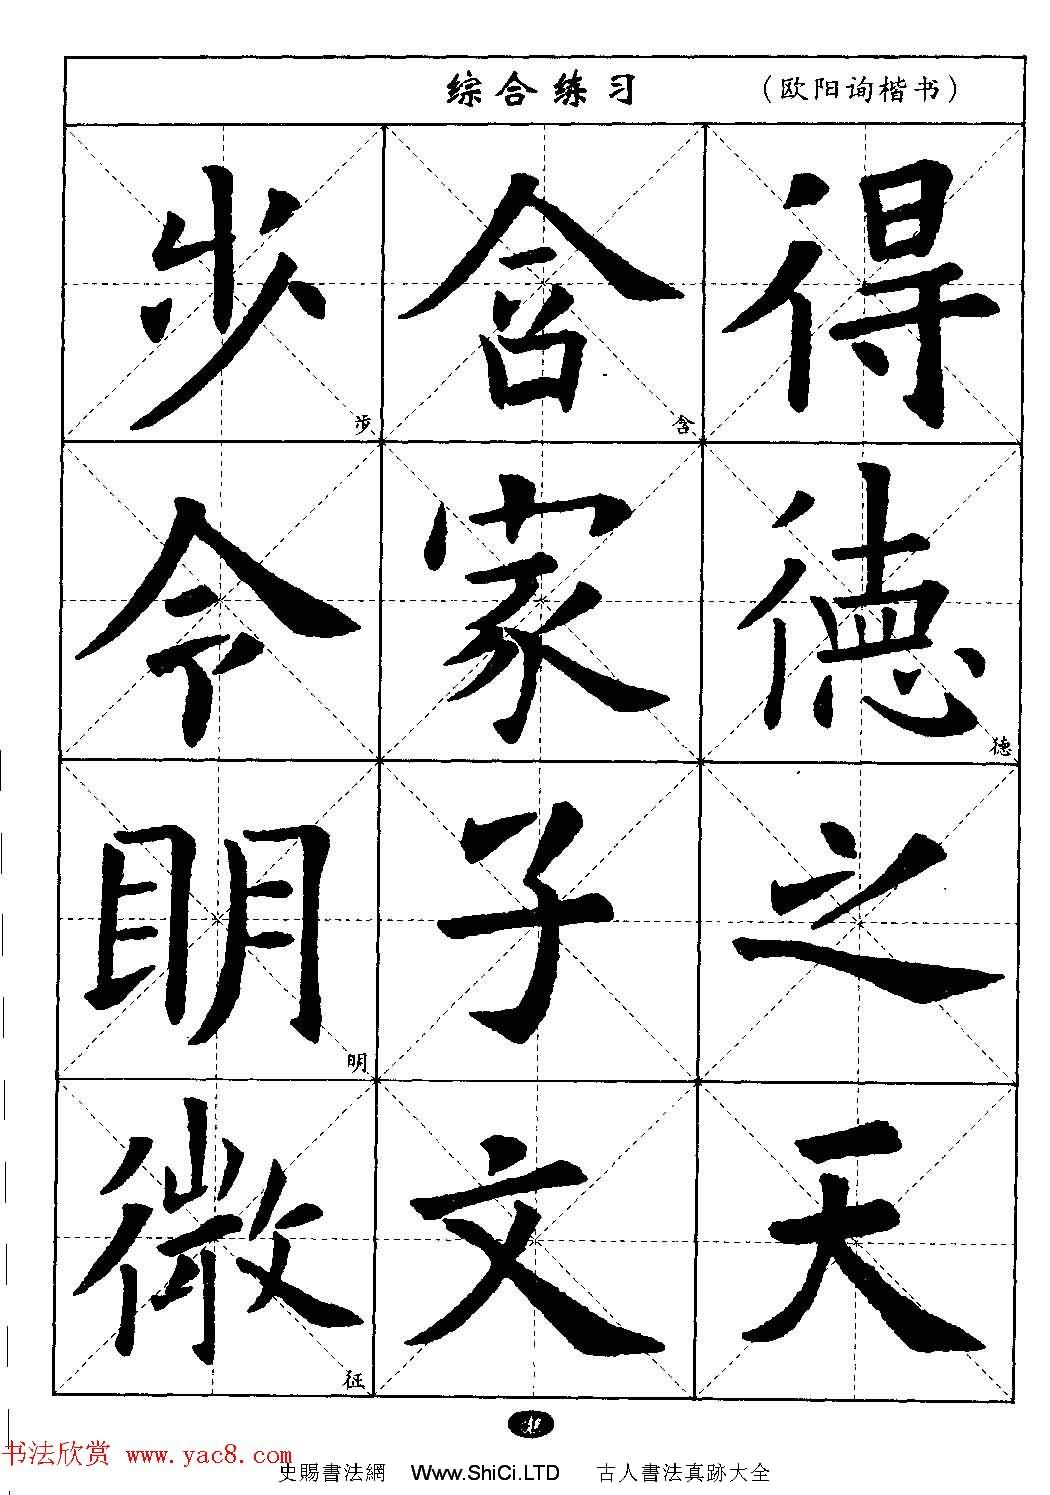 综合练习 （欧阳询楷书）
得
徳 德
之
天
含 含
家
子
文
步 步
令
眀 明
徵 征
书法欣赏 www.yac8.com
史賜書法網 Www.ShiCi.LTD 古人書法真跡大全